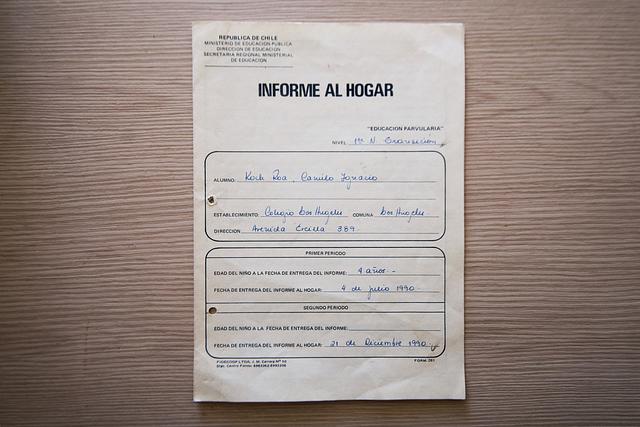 REPUBLICA DE CHILE
MINISTERIO DE EDUCACION PUBLICA
DIRECCION DE EDUCACION
SECRETARIA REGIONAL MINISTERIAL
DE EDUCACION
INFORME AL HOGAR
"EDUCACION PARVULARIA"
NIVEL 1er N Transición
ALUMNO: Koch Roa, Camilo Ignacio
ESTABLECIMIENTO Colegio Los Angeles COMUNA Los Angeles
DIRECCION Avenida Ercilla 389.
PRIMER PERIODO
EDAD DEL NIÑO A LA FECHA DE ENTREGA DEL INFORME: 4 años.-
FECHA DE ENTREGA DEL INFORME AL HOGAR: 4 de julio 1990.
SEGUNDO PERIODO
EDAD DEL NIÑO A LA FECHA DE ENTREGA DEL INFORME:
FECHA DE ENTREGA DEL INFORME AL HOGAR: 21 de Diciembre 1990.
FORM. 261